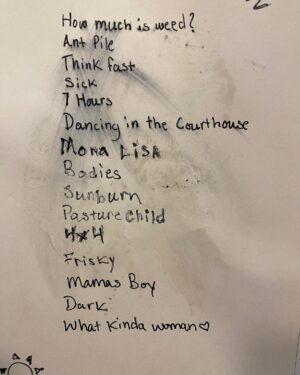 2
How much is weed?
Ant Pile
Think fast
Sick
7 Hours
Dancing in the Courthouse
Mona Lisa
Bodies
Sunburn
Pasture Child
4x4
Frisky
Mamas Boy
Dark
What Kinda woman♡